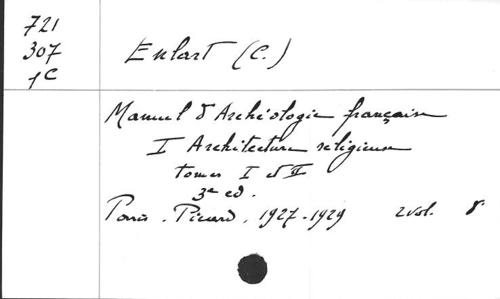 721
307
1C
Enlart (C.)
Manuel d'Archéologie française
I Architecture religieuse
tomes I et II
3e ed.
Paris. Picard. 1927-1929 2 vol. 8°